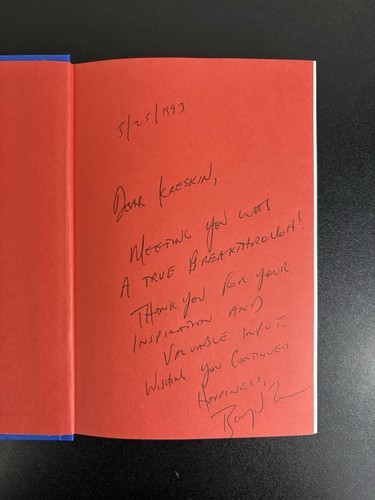 5/25/1993
Dear Kreskin,
Meeting you was
a true breakthrough!
Thank you for your
inspiration and
valuable input.
Wishing you continued
happiness,